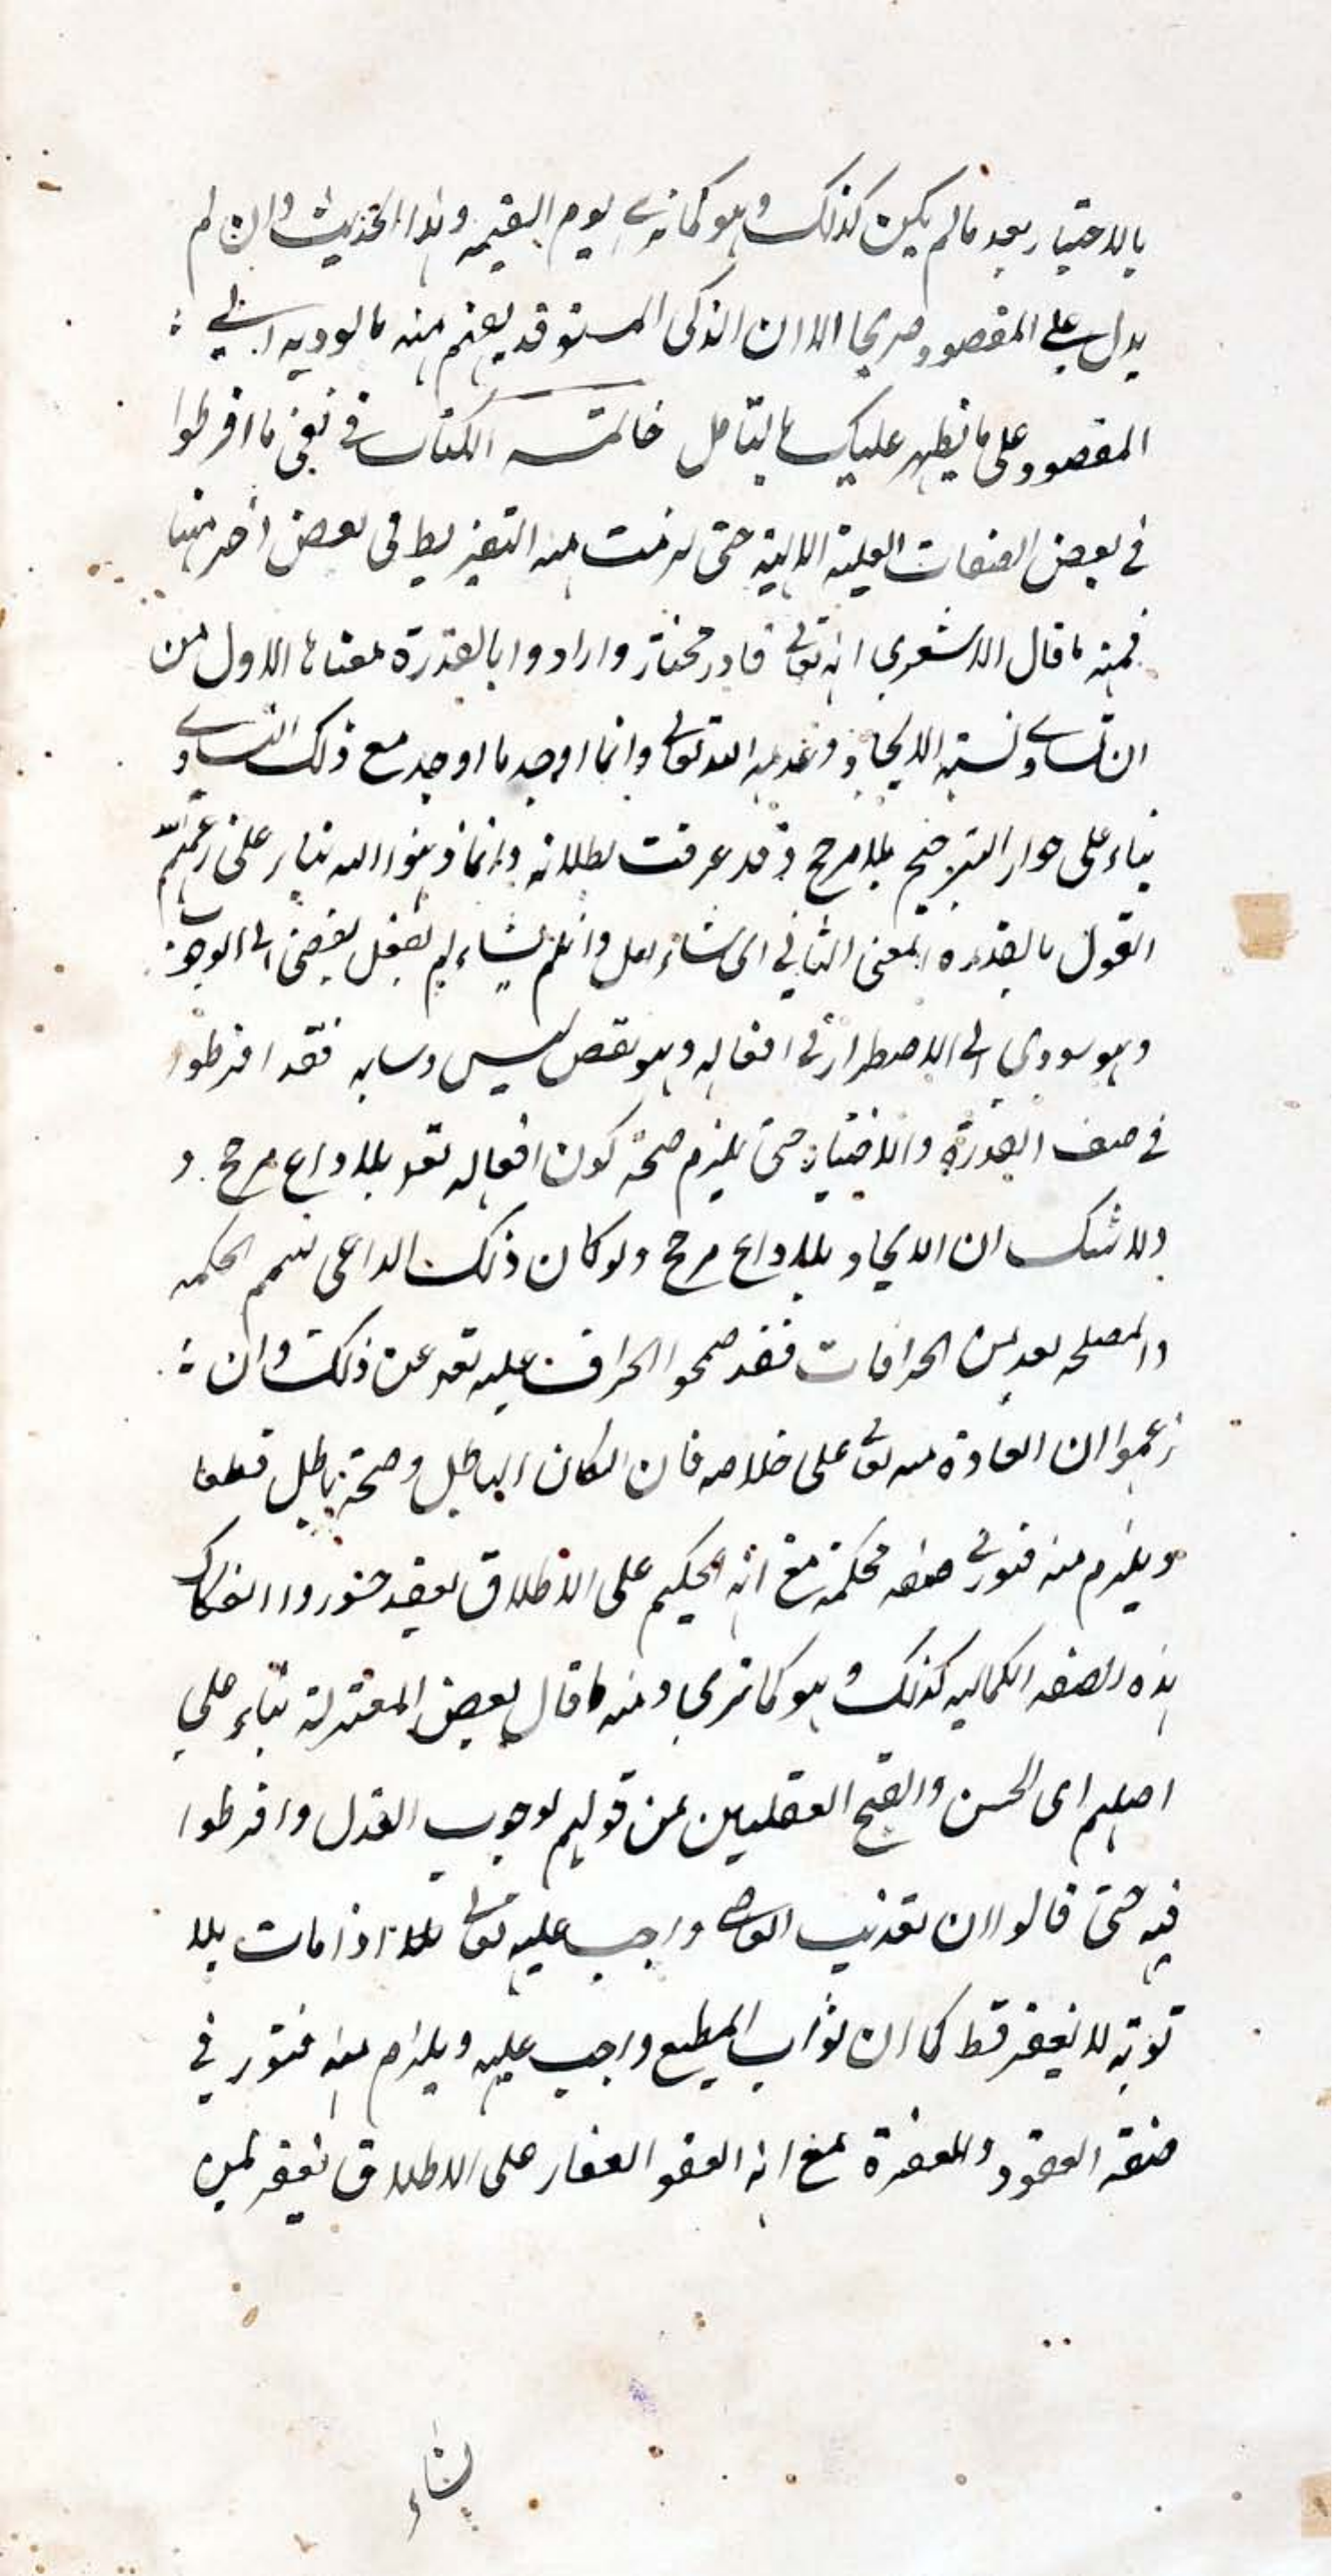 بالاختيار بعد ما لم يكن كذلك وهو كما ترى يوم القيمه وهذا الحديث وان لم
يدل على المقصود صريحا الا ان الذكى المستوقد يفهم منه ما يوديه الى
المقصود على ما يظهر عليك بالتامل خاتمة الكتاب فى نفى ما افرطوا
فى بعض الصفات العلية الالهية حتى لزمت منه التفريط فى بعض اخر منها
فمنه ما قال الاشعرى انه تعالى قادر مختار وارادوا بالقدرة معناها الاول من
ان تساوى نسبة الايجاد وعدمه اليه تعالى وانما اوجد ما اوجد مع ذلك التساوى
بناء على جواز الترجيح بلا مرجح وقد عرفت بطلانه وانما ذهبوا اليه بناء على زعمهم
القول بالقدره بالمعنى الثانى اى ان شاء فعل وان لم يشاء لم يفعل يفضى الى الوجوب
وهو يودى الى الاضطرار فى افعاله وهو نقص ليس وسابه فقد افرطوا
فى صفة القدرة والاختيار حتى يلزم صحة كون افعاله تعه بلا داع مرجح و
ولا شك ان الايجاد بلا داع مرجح ولو كان ذلك الداعى الحكمه
والمصلحه يعد من الخرافات فقد صححوا الخراف عليه تعه عن ذلك وان
زعموا ان العادة منه تعالى على خلافه فان امكان الباطل وصحته باطل قطعا
ويلزم منه فتور فى صفة حكمته مع انه الحكيم على الاطلاق فقد جوزوا انفكاك
هذه الصفه الكماليه كذلك وهو كما ترى ومنه ما قال بعض المعتزلة بناء على
اصلهم اى الحسن والقبح العقليين من قولهم بوجوب العدل وافرطوا
فيه حتى قالوا ان تعذيب العاصى واجب عليه تعالى اذا مات بلا
توبة لا يغفر قط كما ان ثواب المطيع واجب عليه ويلزم منه فتور فى
صفة العفو والمغفرة مع انه العفو الغفار على الاطلاق يغفر لمن
يشاء